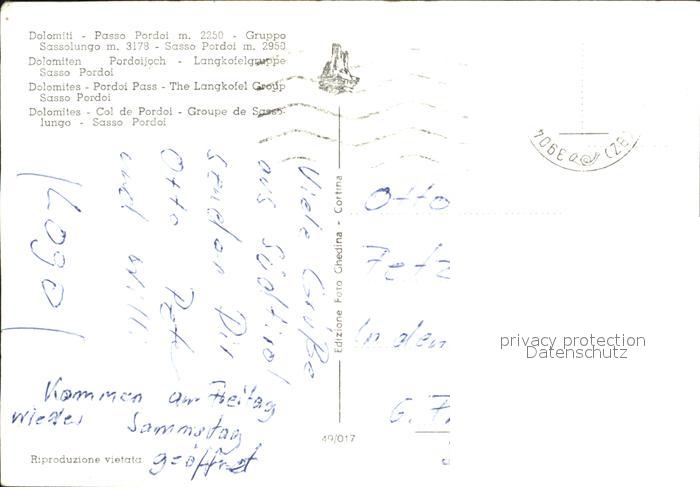 Dolomiti - Passo Pordoi m. 2250 - Gruppo
Sassolungo m. 3178 - Sasso Pordoi m. 2950
Dolomiten Pordoijoch - Langkofelgruppe
Sasso Pordoi
Dolomites - Pordoi Pass - The Langkofel Group
Sasso Pordoi
Dolomites - Col de Pordoi - Groupe de Sasso-
lungo - Sasso Pordoi
Viele Grüße
aus Südtirol
senden Dir
Otto
und Willi
Kommen am Freitag
wieder Sammstag
geöffnet
Edizione Foto Ghedina - Cortina
3904
Otto
In den
privacy protection
Datenschutz
49/017
Riproduzione vietata